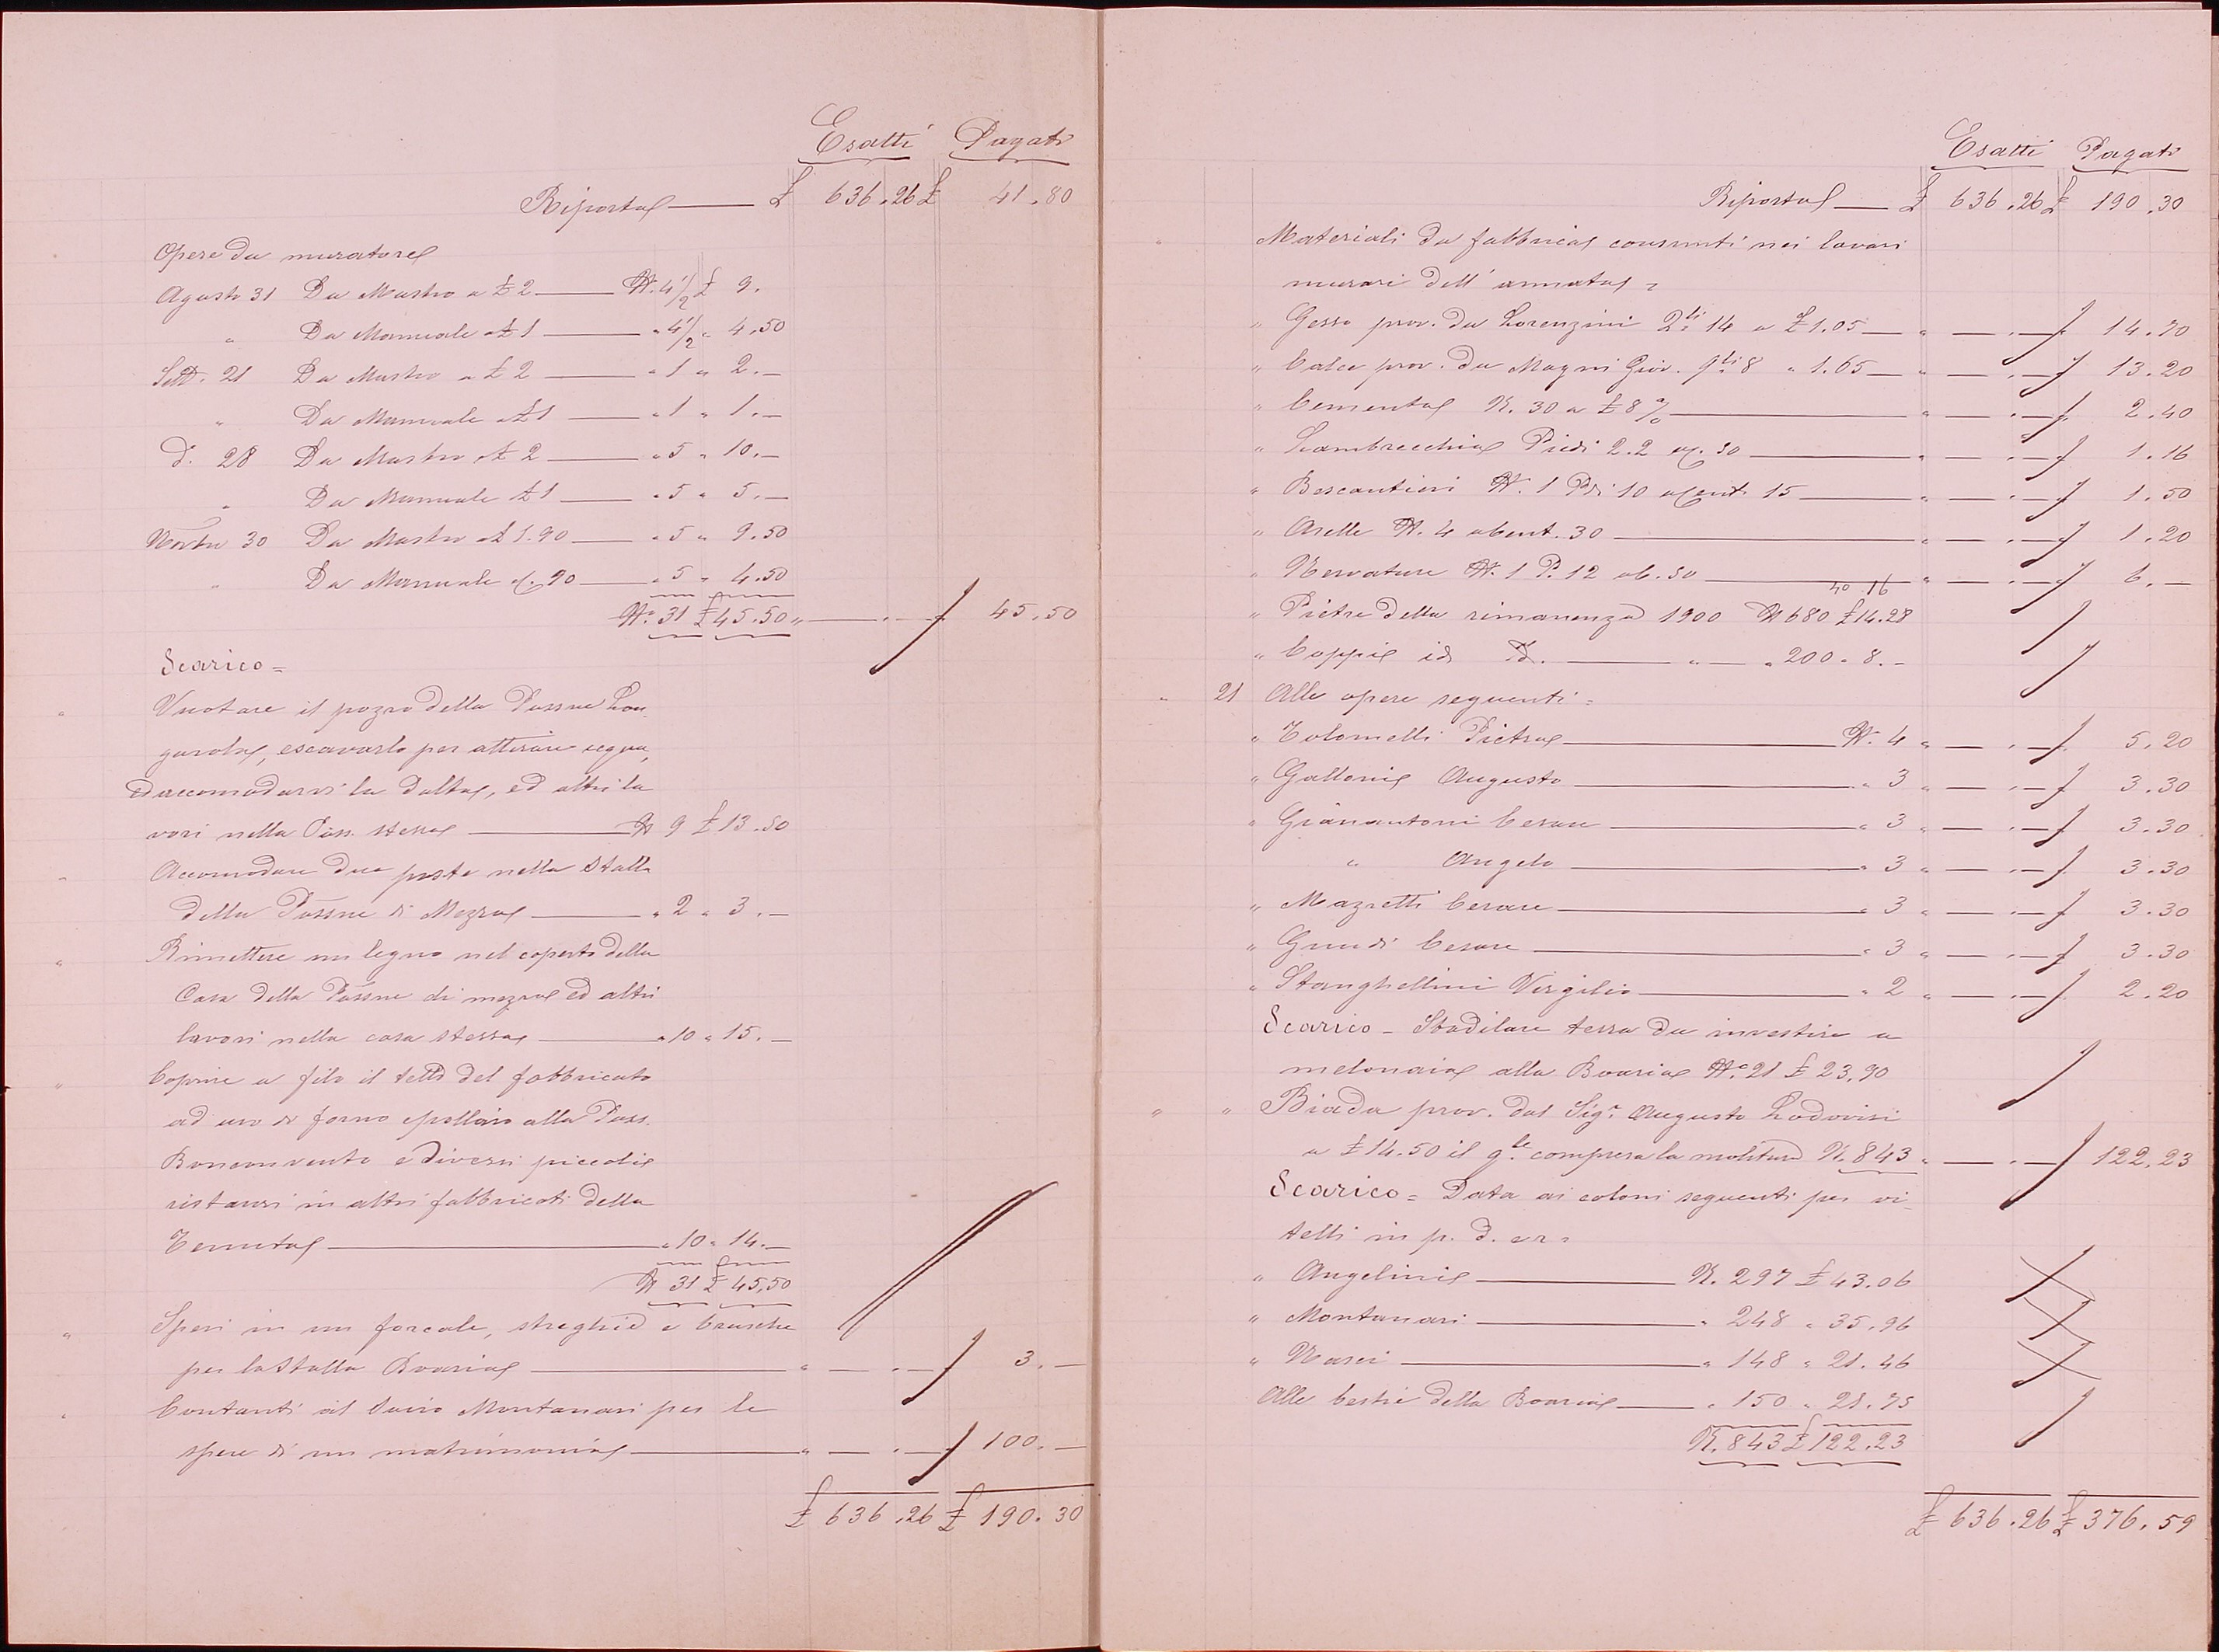 Esatti Pagati
Riporto — £ 636.26 £ 41.80
Opere da muratore
Agosto 31 Da Mastro a £ 2 — N. 4 1/2 £ 9.
" Da Manuale a £ 1 — " 4 1/2 " 4.50
Sett. 21 Da Mastro a £ 2 — " 1 " 2.—
" Da Manuale a £ 1 — " 1 " 1.—
d. 28 Da Mastro a £ 2 — " 5 " 10.—
" Da Manuale a £ 1 — " 5 " 5.—
Nov.bre 30 Da Mastro a £ 1.90 — " 5 " 9.50
" Da Manuale a c. 90 — " 5 " 4.50
N.° 31 £ 45.50 " — . — 45.50
Scarico =
" Vuotare il pozzo della Possne Lon-
garola, escavarlo per attivare acqua,
ed accomodarvi la volta, ed altri la
vori nella Poss. stessa — N 9 £ 13.50
" Accomodare due poste nella stalla
della Possne di Mezzo — " 2 " 3.—
" Rimettere un legno nel coperto della
Casa della Possne di mezzo ed altri
lavori nella casa stessa — " 10 " 15.—
" Coprire a filo il tetto del fabbricato
ad uso di forno e pollaio alla Poss.
Bonconvento e diversi piccoli
ristauri in altri fabbricati della
Tenuta — " 10 " 14.—
N 31 £ 45,50
" Spesi in un forcale, streghie e brusche
per la stalla Boaria — " — . — 3.—
" Contanti al Socio Montanari per le
spese di un matrimonio — " — . — 100.—
£ 636.26 £ 190.30
Esatti Pagati
Riporto — £ 636.26 £ 190.30
" Materiali da fabbrica consunti nei lavori
murari dell'annata =
" Gesso prov. da Lorenzini Q.li 14 a £ 1.05 — " — . — 14.70
" Calce prov. da Magni Giov. q.li 8 " 1.65 — " — . — 13.20
" Cemento K. 30 a £ 8 % — " — . — 2.40
" Lambrecchia Piedi 2.2 a c. 50 — " — . — 1.16
" Bescantieri N. 1 Pdi 10 a Cent. 15 — " — . — 1.50
" Arelle N. 4 a Cent. 30 — " — . — 1.20
" Nervature N. 1 P. 12 a c. 50 — " — . — 6.—
" Pietre della rimanenza 1900 N 680 £ 14.28
" Coppi id d. — " — " 200 " 8.—
" 21 Alle opere seguenti =
" Tolomelli Pietro — N. 4 " — . — 5.20
" Galloni Augusto — " 3 " — . — 3.30
" Gianantoni Cesare — " 3 " — . — 3.30
" " Angelo — " 3 " — . — 3.30
" Mazzetti Cesare — " 3 " — . — 3.30
" Grundi Cesare — " 3 " — . — 3.30
" Stanghellini Virgilio — " 2 " — . — 2.20
Scarico = Stadilare terra da investire a
melonaia alla Boaria N.° 21 £ 23,90
" " Biada prov. dal Sig.r Augusto Lodovisi
a £ 14.50 il q.le compresa la molitura K. 843 " — . — 122.23
Scarico = Data ai coloni seguenti per vi-
telli in p. d. e r =
" Angelini — K. 297 £ 43.06
" Montanari — " 248 " 35.96
" Nasci — " 148 " 21.46
Alle bestie della Boaria — " 150 " 21.75
K. 843 £ 122.23
£ 636.26 £ 376.59